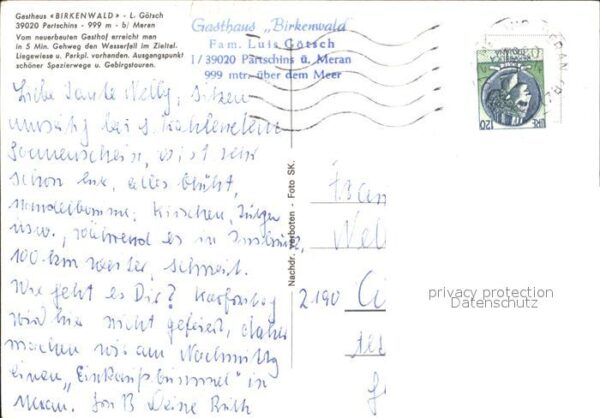 Gasthaus «BIRKENWALD» - L. Götsch
39020 Partschins - 999 m - b/ Meran
Vom neuerbauten Gasthof erreicht man
in 5 Min. Gehweg den Wasserfall im Zieltal.
Liegewiese u. Parkpl. vorhanden. Ausgangspunkt
schöner Spazierwege u. Gebirgstouren.
Gasthaus „Birkenwald"
Fam. Luis Götsch
I/39020 Partschins ü. Meran
999 mtr. über dem Meer
LIRE 120
Liebe Tante Nelly, sitzen
bei
Sonnenschein, es ist sehr
schön hier, alles blüht,
Mandelbäume, Kirschen,
usw., während es in Innsbruck,
100 km weiter, schneit.
Wie geht es Dir? Karfreitag
wird hier nicht gefeiert, daher
machen wir am Nachmittag
einen „Einkaufsbummel" in
Meran. Deine Ruth
Nachdr. verboten - Foto SK.
2190
privacy protection
Datenschutz